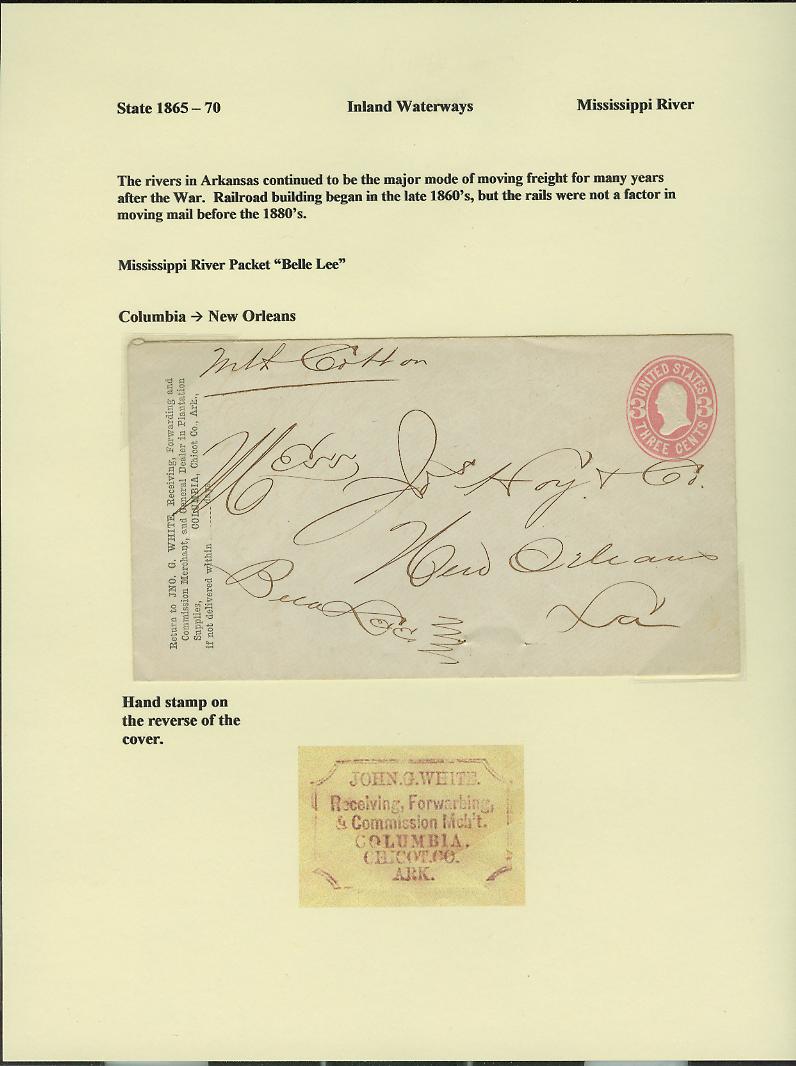 State 1865 – 70 Inland Waterways Mississippi River
The rivers in Arkansas continued to be the major mode of moving freight for many years
after the War. Railroad building began in the late 1860's, but the rails were not a factor in
moving mail before the 1880's.
Mississippi River Packet “Belle Lee”
Columbia → New Orleans
Cotton
UNITED STATES
3 3
THREE CENTS
Return to JNO. G. WHITE, Receiving, Forwarding and
Commission Merchant, and General Dealer in Plantation
Supplies, COLUMBIA, Chicot Co., Ark.,
if not delivered within ...... days.
Mess Jos Hoy & Co.
New Orleans
La
Lee
Hand stamp on
the reverse of the
cover.
JOHN.G.WHITE.
Receiving, Forwarbing,
& Commission Mch't.
COLUMBIA.
CHICOT.CO.
ARK.